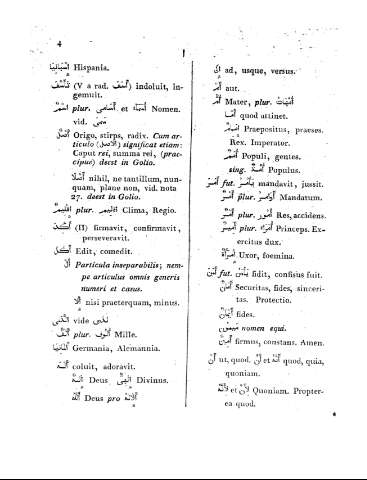 4
ا
اسبانيا Hispania.
تأسّف (V a rad. أسف) indoluit, in-
gemuit.
اسم plur. اسماء et اسامى Nomen.
vid. سمى
اصل Origo, stirps, radix. Cum ar-
ticulo (الاصل) significat etiam:
Caput rei, summa rei, (prae-
cipue) deest in Golio.
اصلا nihil, ne tantillum, nun-
quam, plane non, vid. nota
27. deest in Golio.
اقليم plur. اقاليم Clima, Regio.
اكّد (II) firmavit, confirmavit,
perseveravit.
اكل Edit, comedit.
ال Particula inseparabilis; nem-
pe articulus omnis generis
numeri et casus.
الا nisi praeterquam, minus.
vide
الف plur. Mille.
المانيا Germania, Alemannia.
اله coluit, adoravit.
اله Deus الهى Divinus.
الله Deus pro الاله
الى ad, usque, versus.
ام aut.
ام Mater, plur. امهات
اما quod attinet.
امام Praepositus, praeses.
Rex. Imperator.
امم Populi, gentes.
sing. امة Populus.
امر fut. يأمر mandavit, jussit.
امر plur. اوامر Mandatum.
امر plur. امور Res, accidens.
امير plur. امراء Princeps. Ex-
ercitus dux.
امرأة Uxor, foemina.
امن fut. يأمن fidit, confisus fuit.
امان Securitas, fides, sinceri-
tas. Protectio.
ايمان fides.
nomen equi.
امين firmus, constans. Amen.
ان ut, quod. ان et انه quod, quia,
quoniam.
لانه et لان Quoniam. Propter-
ea quod.